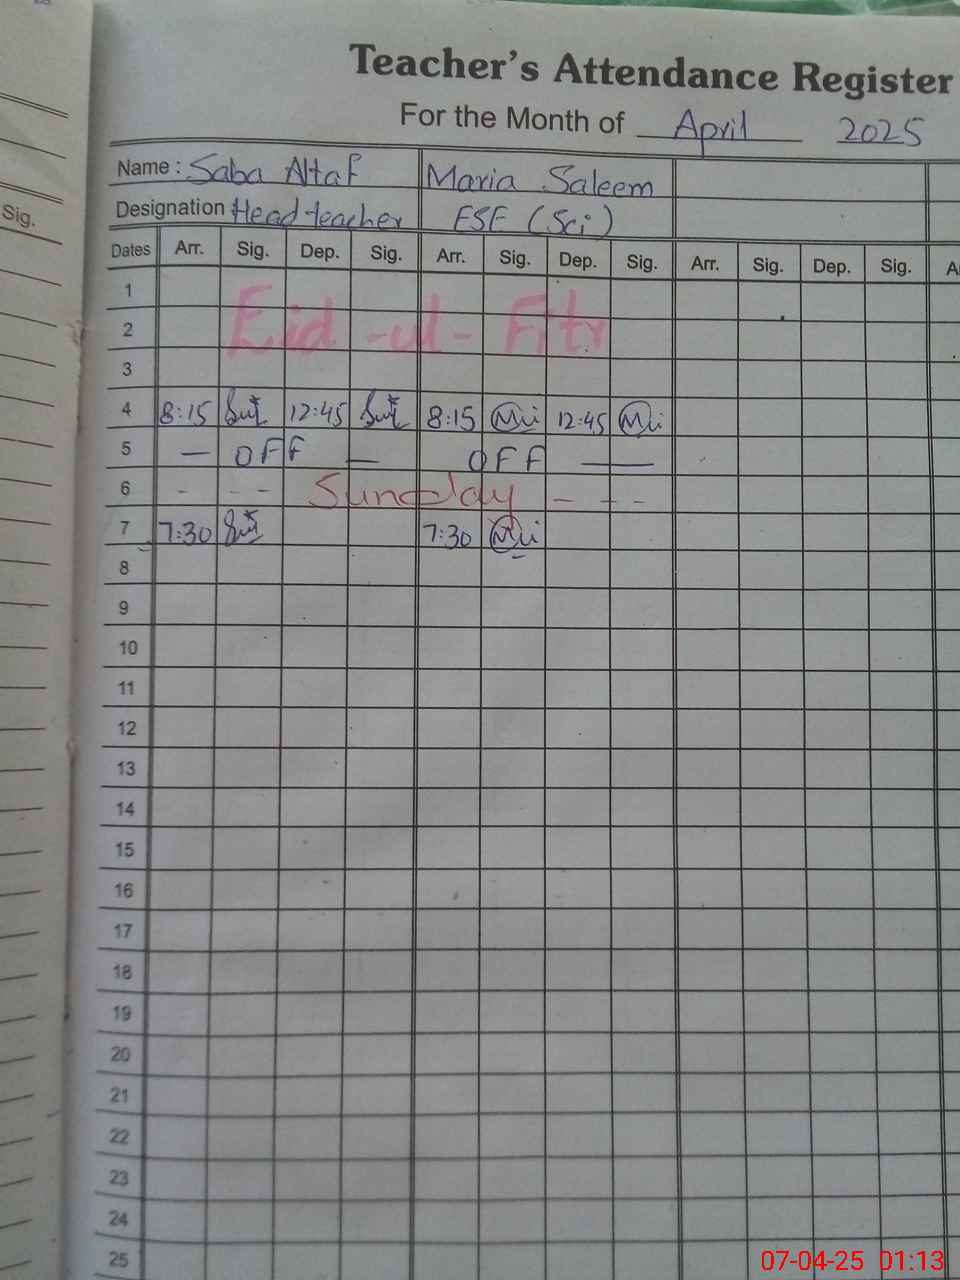 Teacher's Attendance Register
For the Month of April 2025
Name : Saba Altaf Maria Saleem
Designation Head teacher ESE (Sci)
Sig.
Dates Arr. Sig. Dep. Sig. Arr. Sig. Dep. Sig. Arr. Sig. Dep. Sig.
1
Eid-ul-Fitr
2
3
4 8:15 12:45 8:15 12:45
5 — OFF — OFF —
6 - - - Sunday - - -
7 7:30 7:30
8
9
10
11
12
13
14
15
16
17
18
19
20
21
22
23
24
25
07-04-25 01:13